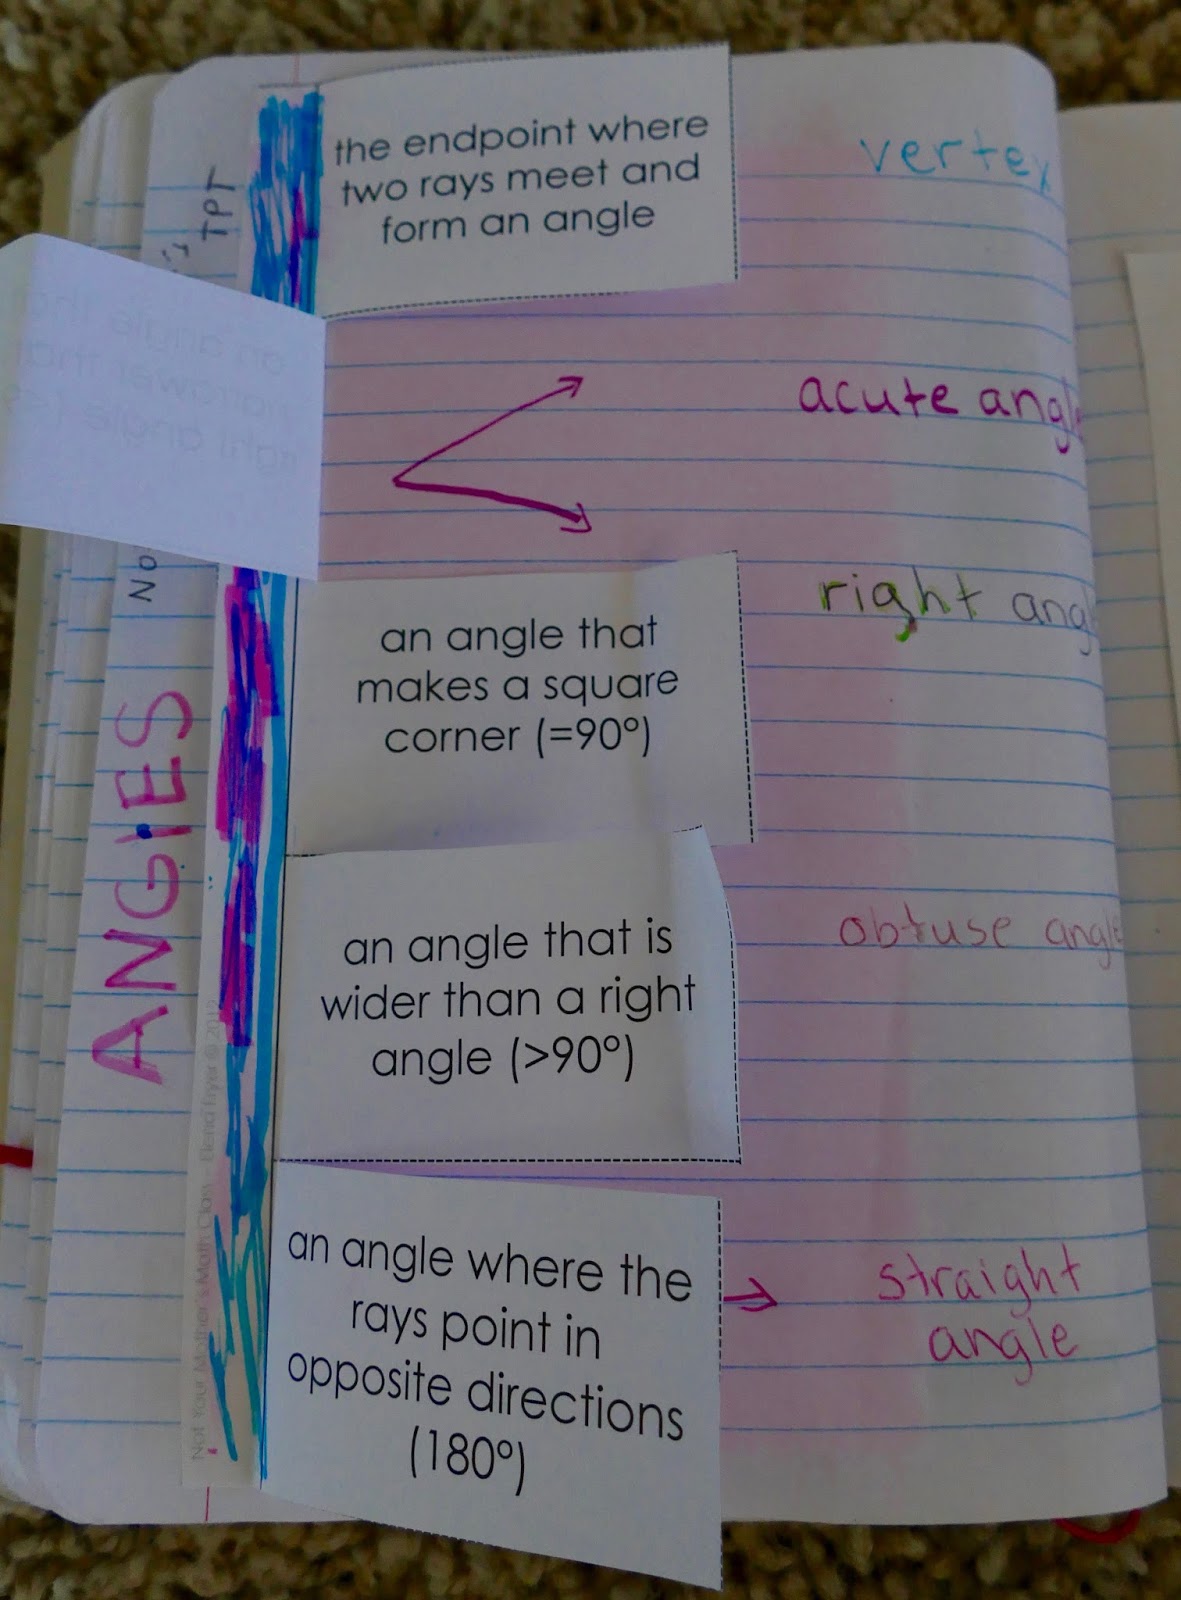 the endpoint where
two rays meet and
form an angle
vertex
TPT
an angle that
narrower than
right angle (<
acute angle
No
an angle that
makes a square
corner (=90°)
right ang
ANGlES
an angle that is
wider than a right
angle (>90°)
obtuse angle
an angle where the
rays point in
opposite directions
(180°)
straight
angle
Not Your Mother's Math Class Elena Fryer © 2012